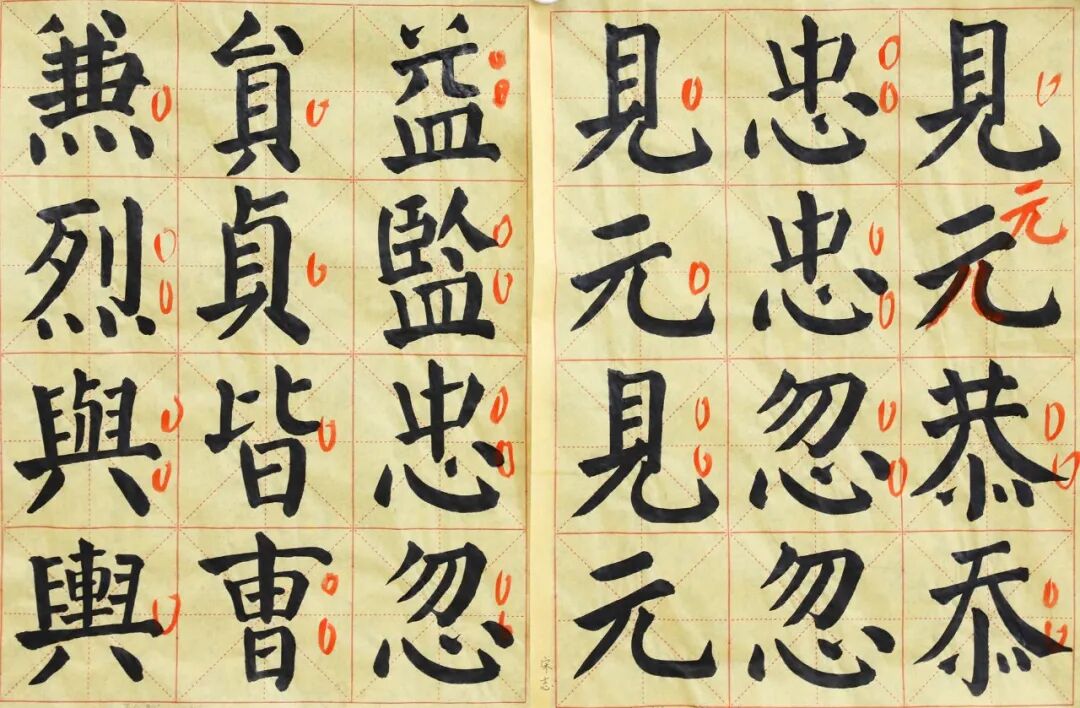 見元恭忝
元
忠忠忽忽
見元見元
益監忠忽
貟貞皆曺
兼烈與輿